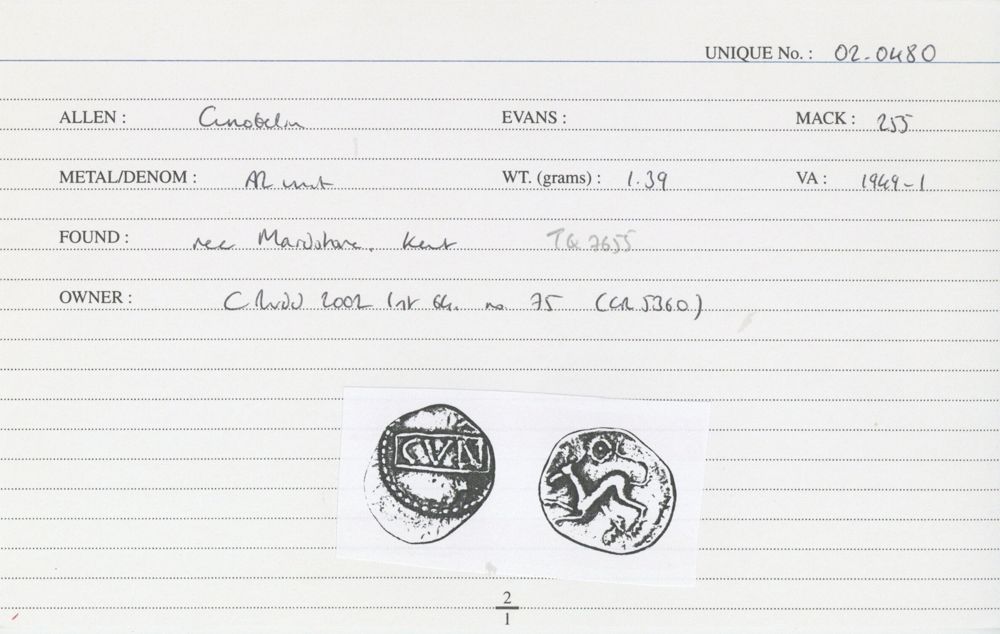 UNIQUE No. : 02-0480
ALLEN : Cunobelin EVANS : MACK : 255
METAL/DENOM : AR unit WT. (grams) : 1.39 VA : 1949-1
FOUND : nr Maidstone, Kent TQ 7655
OWNER : C Rudd 2002 list 64. no. 75 (CR 5360)
CVN
2
1